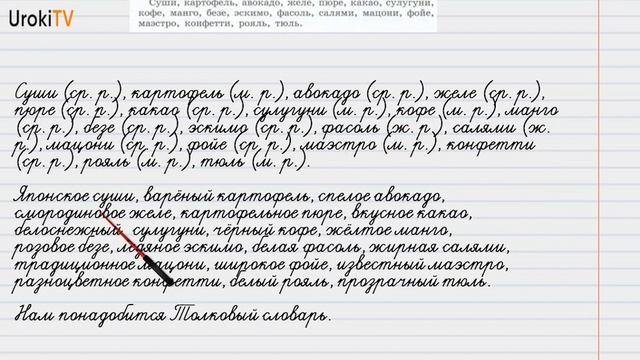 UrokiTV
Суши, картофель, авокадо, желе, пюре, какао, сулугуни,
кофе, манго, безе, эскимо, фасоль, салями, мацони, фойе,
маэстро, конфетти, рояль, тюль.
Суши (ср. р.), картофель (м. р.), авокадо (ср. р.), желе (ср. р.),
пюре (ср. р.), какао (ср. р.), сулугуни (м. р.), кофе (м. р.), манго
(ср. р.), безе (ср. р.), эскимо (ср. р.), фасоль (ж. р.), салями (ж.
р.), мацони (ср. р.), фойе (ср. р.), маэстро (м. р.), конфетти
(ср. р.), рояль (м. р.), тюль (м. р.).
Японское суши, варёный картофель, спелое авокадо,
смородиновое желе, картофельное пюре, вкусное какао,
белоснежный сулугуни, чёрный кофе, жёлтое манго,
розовое безе, ледяное эскимо, белая фасоль, жирная салями,
традиционное мацони, широкое фойе, известный маэстро,
разноцветное конфетти, белый рояль, прозрачный тюль.
Нам понадобится Толковый словарь.